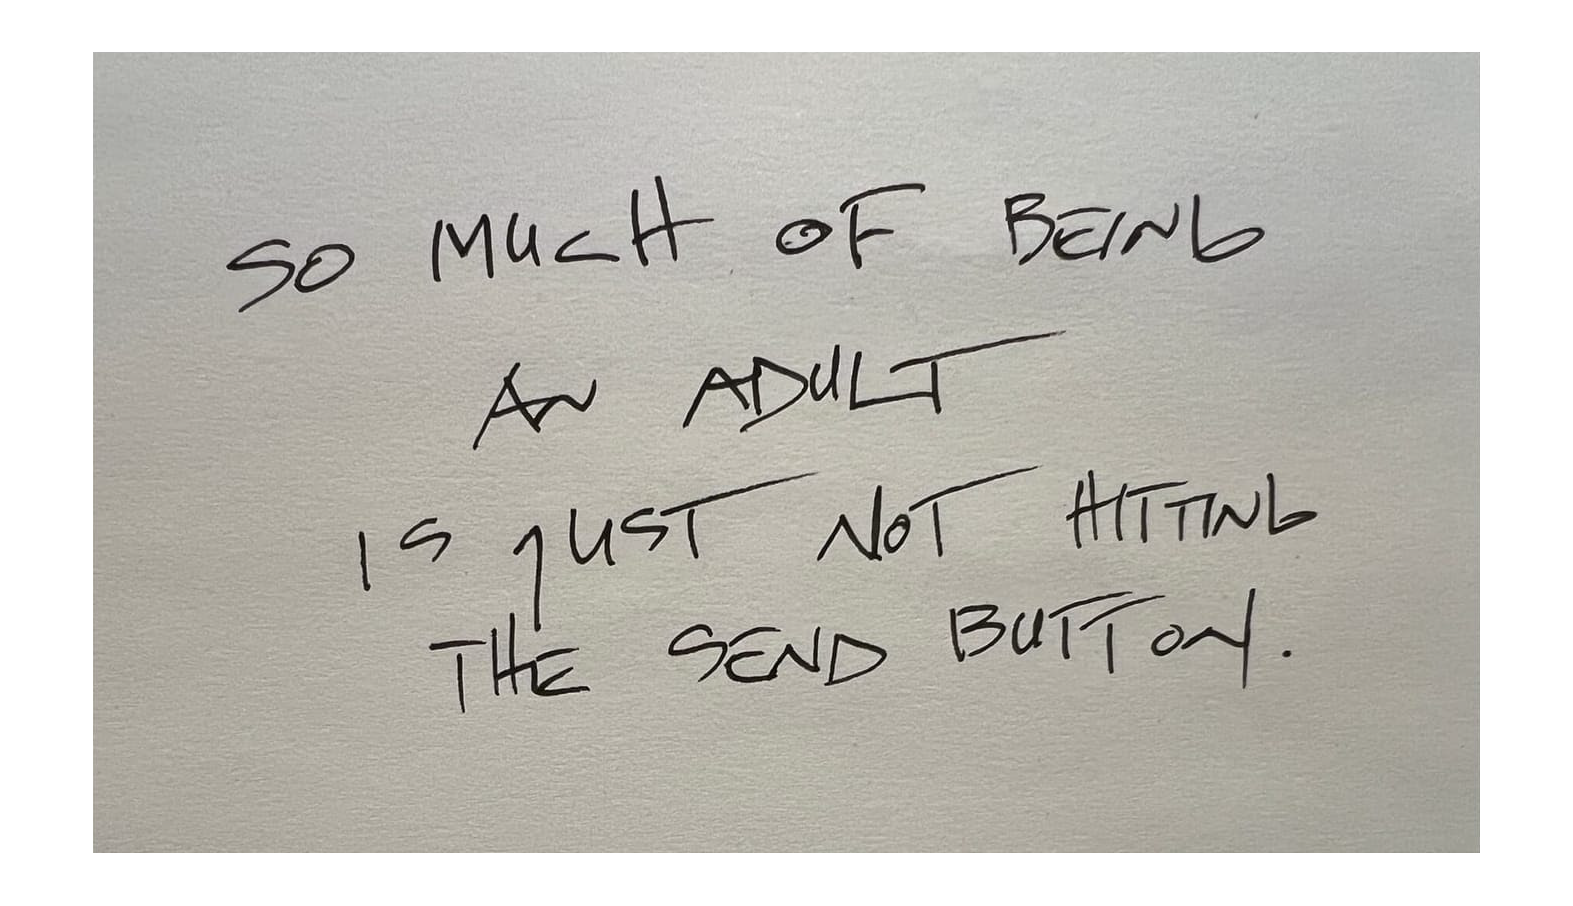 SO MUCH OF BEING
AN ADULT
IS JUST NOT HITTING
THE SEND BUTTON.